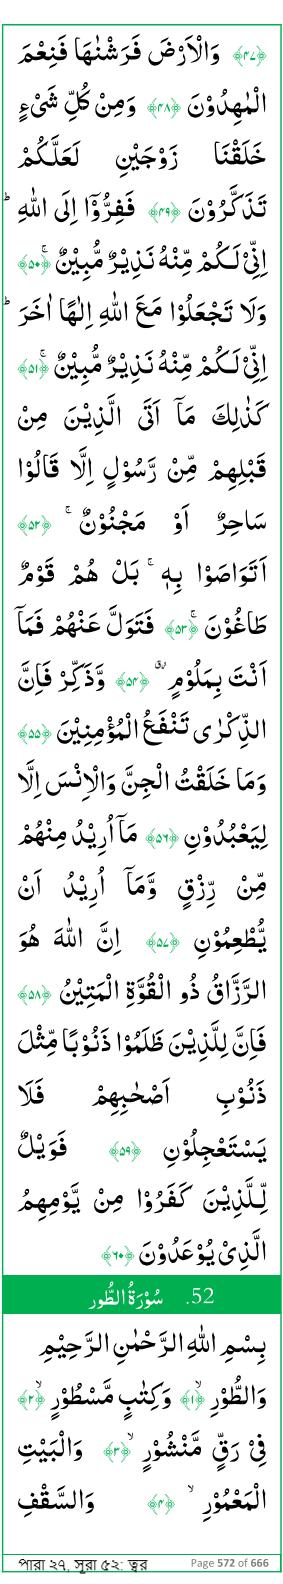 ﴿۴۷﴾ وَالْاَرْضَ فَرَشْنٰهَا فَنِعْمَ
الْمٰهِدُوْنَ ﴿۴۸﴾ وَمِنْ كُلِّ شَیْءٍ
خَلَقْنَا زَوْجَیْنِ لَعَلَّكُمْ
تَذَكَّرُوْنَ ﴿۴۹﴾ فَفِرُّوْۤا اِلَی اللّٰهِ ؕ
اِنِّیْ لَكُمْ مِّنْهُ نَذِیْرٌ مُّبِیْنٌ ۚ﴿۵۰﴾
وَلَا تَجْعَلُوْا مَعَ اللّٰهِ اِلٰهًا اٰخَرَ ؕ
اِنِّیْ لَكُمْ مِّنْهُ نَذِیْرٌ مُّبِیْنٌ ۚ﴿۵۱﴾
كَذٰلِكَ مَاۤ اَتَی الَّذِیْنَ مِنْ
قَبْلِهِمْ مِّنْ رَّسُوْلٍ اِلَّا قَالُوْا
سَاحِرٌ اَوْ مَجْنُوْنٌ ۚ ﴿۵۲﴾
اَتَوَاصَوْا بِهٖ ۚ بَلْ هُمْ قَوْمٌ
طَاغُوْنَ ۚ﴿۵۳﴾ فَتَوَلَّ عَنْهُمْ فَمَاۤ
اَنْتَ بِمَلُوْمٍ ٭۫ ﴿۵۴﴾ وَّذَكِّرْ فَاِنَّ
الذِّكْرٰی تَنْفَعُ الْمُؤْمِنِیْنَ ﴿۵۵﴾
وَمَا خَلَقْتُ الْجِنَّ وَالْاِنْسَ اِلَّا
لِیَعْبُدُوْنِ ﴿۵۶﴾ مَاۤ اُرِیْدُ مِنْهُمْ
مِّنْ رِّزْقٍ وَّمَاۤ اُرِیْدُ اَنْ
یُّطْعِمُوْنِ ﴿۵۷﴾ اِنَّ اللّٰهَ هُوَ
الرَّزَّاقُ ذُو الْقُوَّةِ الْمَتِیْنُ ﴿۵۸﴾
فَاِنَّ لِلَّذِیْنَ ظَلَمُوْا ذَنُوْبًا مِّثْلَ
ذَنُوْبِ اَصْحٰبِهِمْ فَلَا
یَسْتَعْجِلُوْنِ ﴿۵۹﴾ فَوَیْلٌ
لِّلَّذِیْنَ كَفَرُوْا مِنْ یَّوْمِهِمُ
الَّذِیْ یُوْعَدُوْنَ ﴿۶۰﴾
52. سُوْرَةُ الطُّور
بِسْمِ اللّٰهِ الرَّحْمٰنِ الرَّحِیْمِ
وَالطُّوْرِ ۙ﴿۱﴾ وَكِتٰبٍ مَّسْطُوْرٍ ۙ﴿۲﴾
فِیْ رَقٍّ مَّنْشُوْرٍ ۙ ﴿۳﴾ وَالْبَیْتِ
الْمَعْمُوْرِ ۙ ﴿۴﴾ وَالسَّقْفِ
পারা ২৭, সূরা ৫২: ত্বূর Page 572 of 666